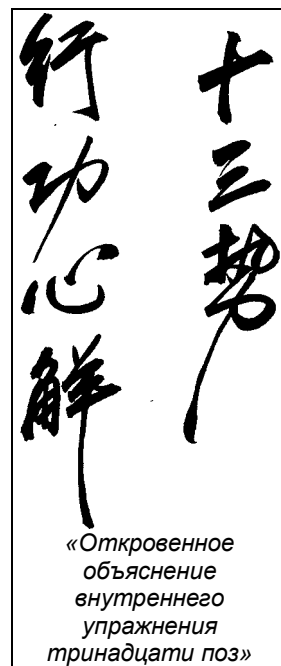 十三势
行功心解
«Откровенное
объяснение
внутреннего
упражнения
тринадцати поз»